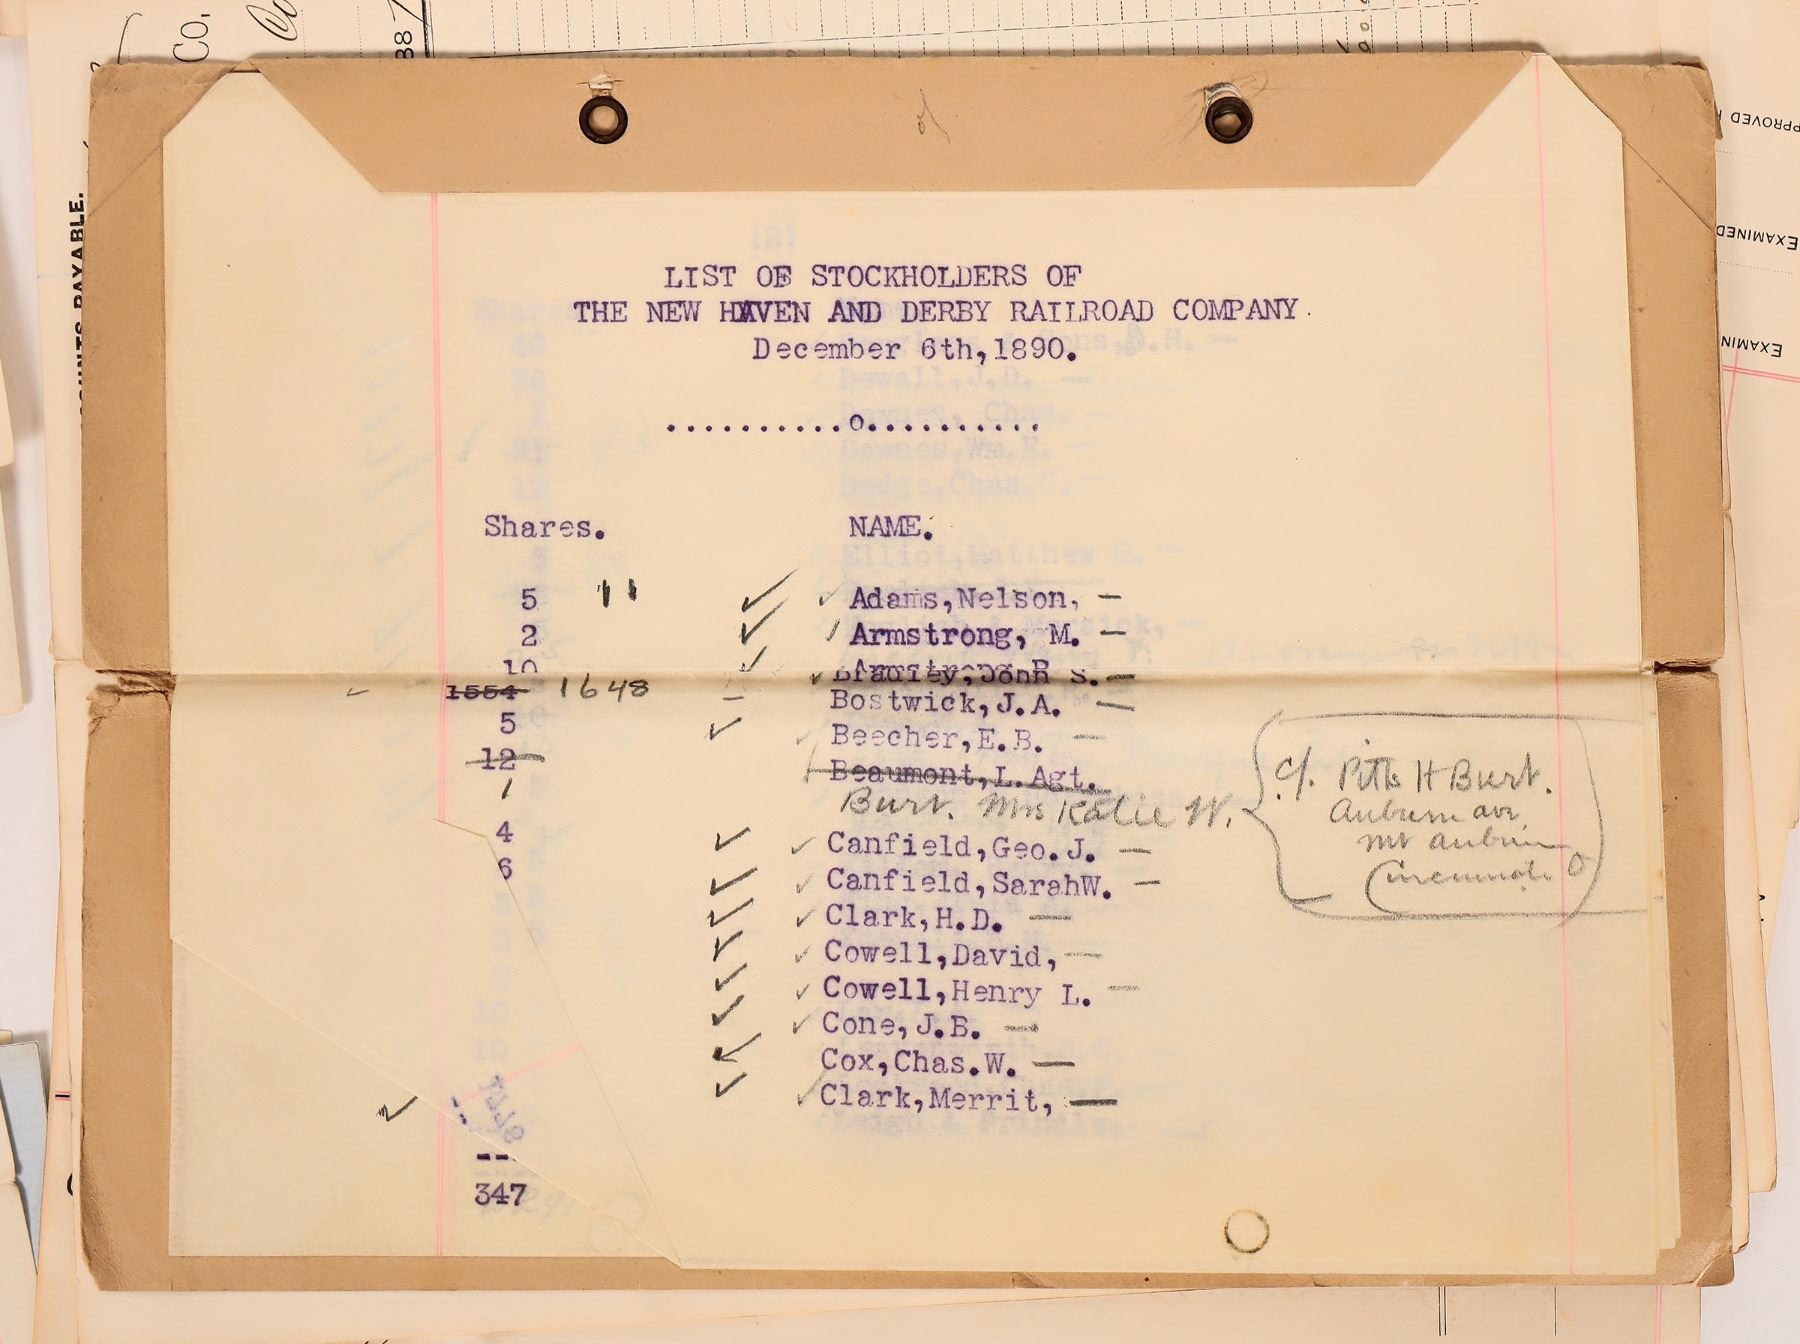 CO,
ACCOUNTS PAYABLE.
APPROVED
EXAMINED
EXAMIN
LIST OF STOCKHOLDERS OF
THE NEW HAVEN AND DERBY RAILROAD COMPANY.
December 6th,1890.
..........o..........
Shares. NAME.
5 11 Adams,Nelson, —
2 Armstrong, M. —
10 Bradley,John S. —
1554 1648 Bostwick,J.A. —
5 Beecher,E.B. —
12 Beaumont,L.Agt.
1 Burt. Mrs Katie W.
c/. Pitts H Burt.
Auburn ave
Mt Auburn
Cincinnati O
4 Canfield,Geo.J. —
6 Canfield,SarahW. —
Clark,H.D. —
Cowell,David, —
Cowell,Henry L. —
Cone,J.B. —
Cox,Chas.W. —
Clark,Merrit, —
347